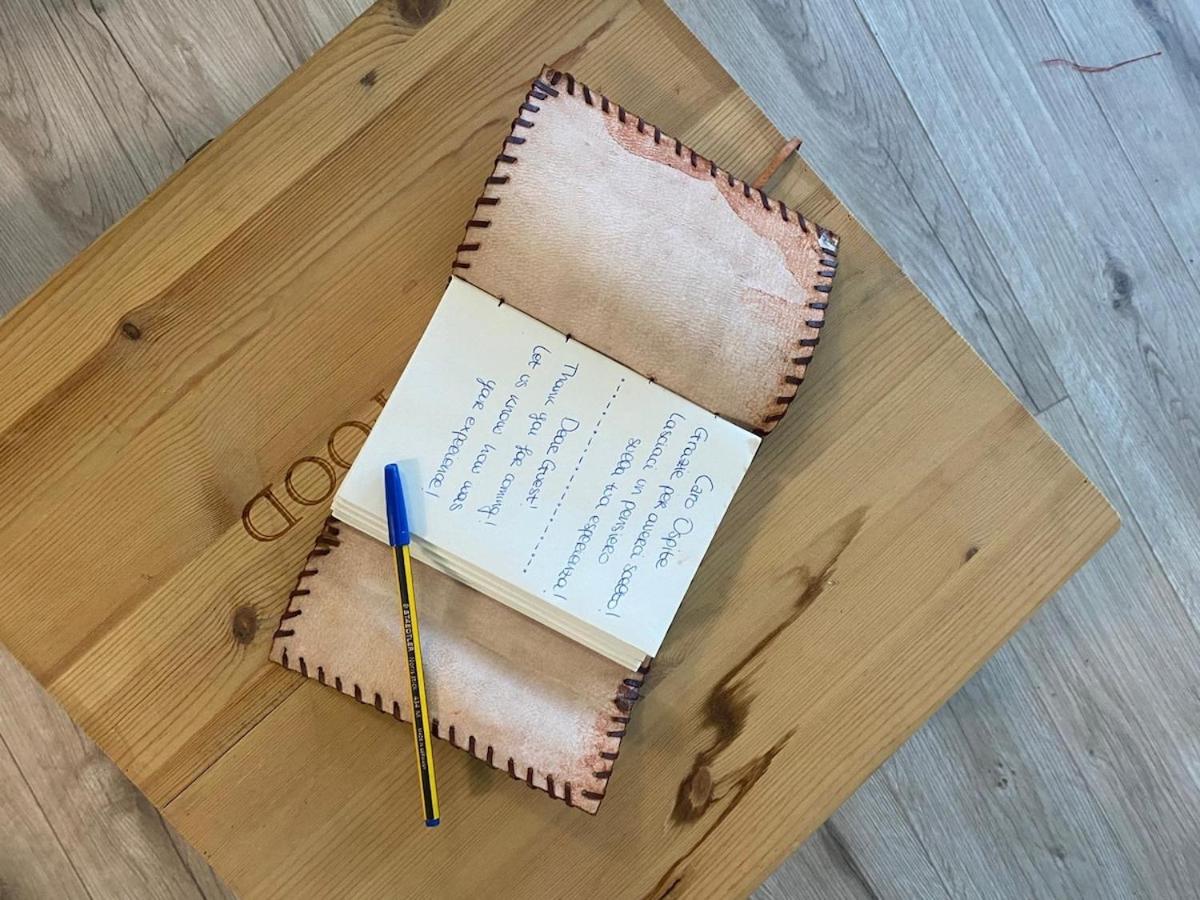 Caro Ospite
Grazie per averci scelto!
Lasciaci un pensiero
sulla tua esperienza!
Dear Guest!
Thank you for coming!
Let us know how was
your experience!
STAEDTLER Noris stick 434 M MADE IN GERMANY
OOD